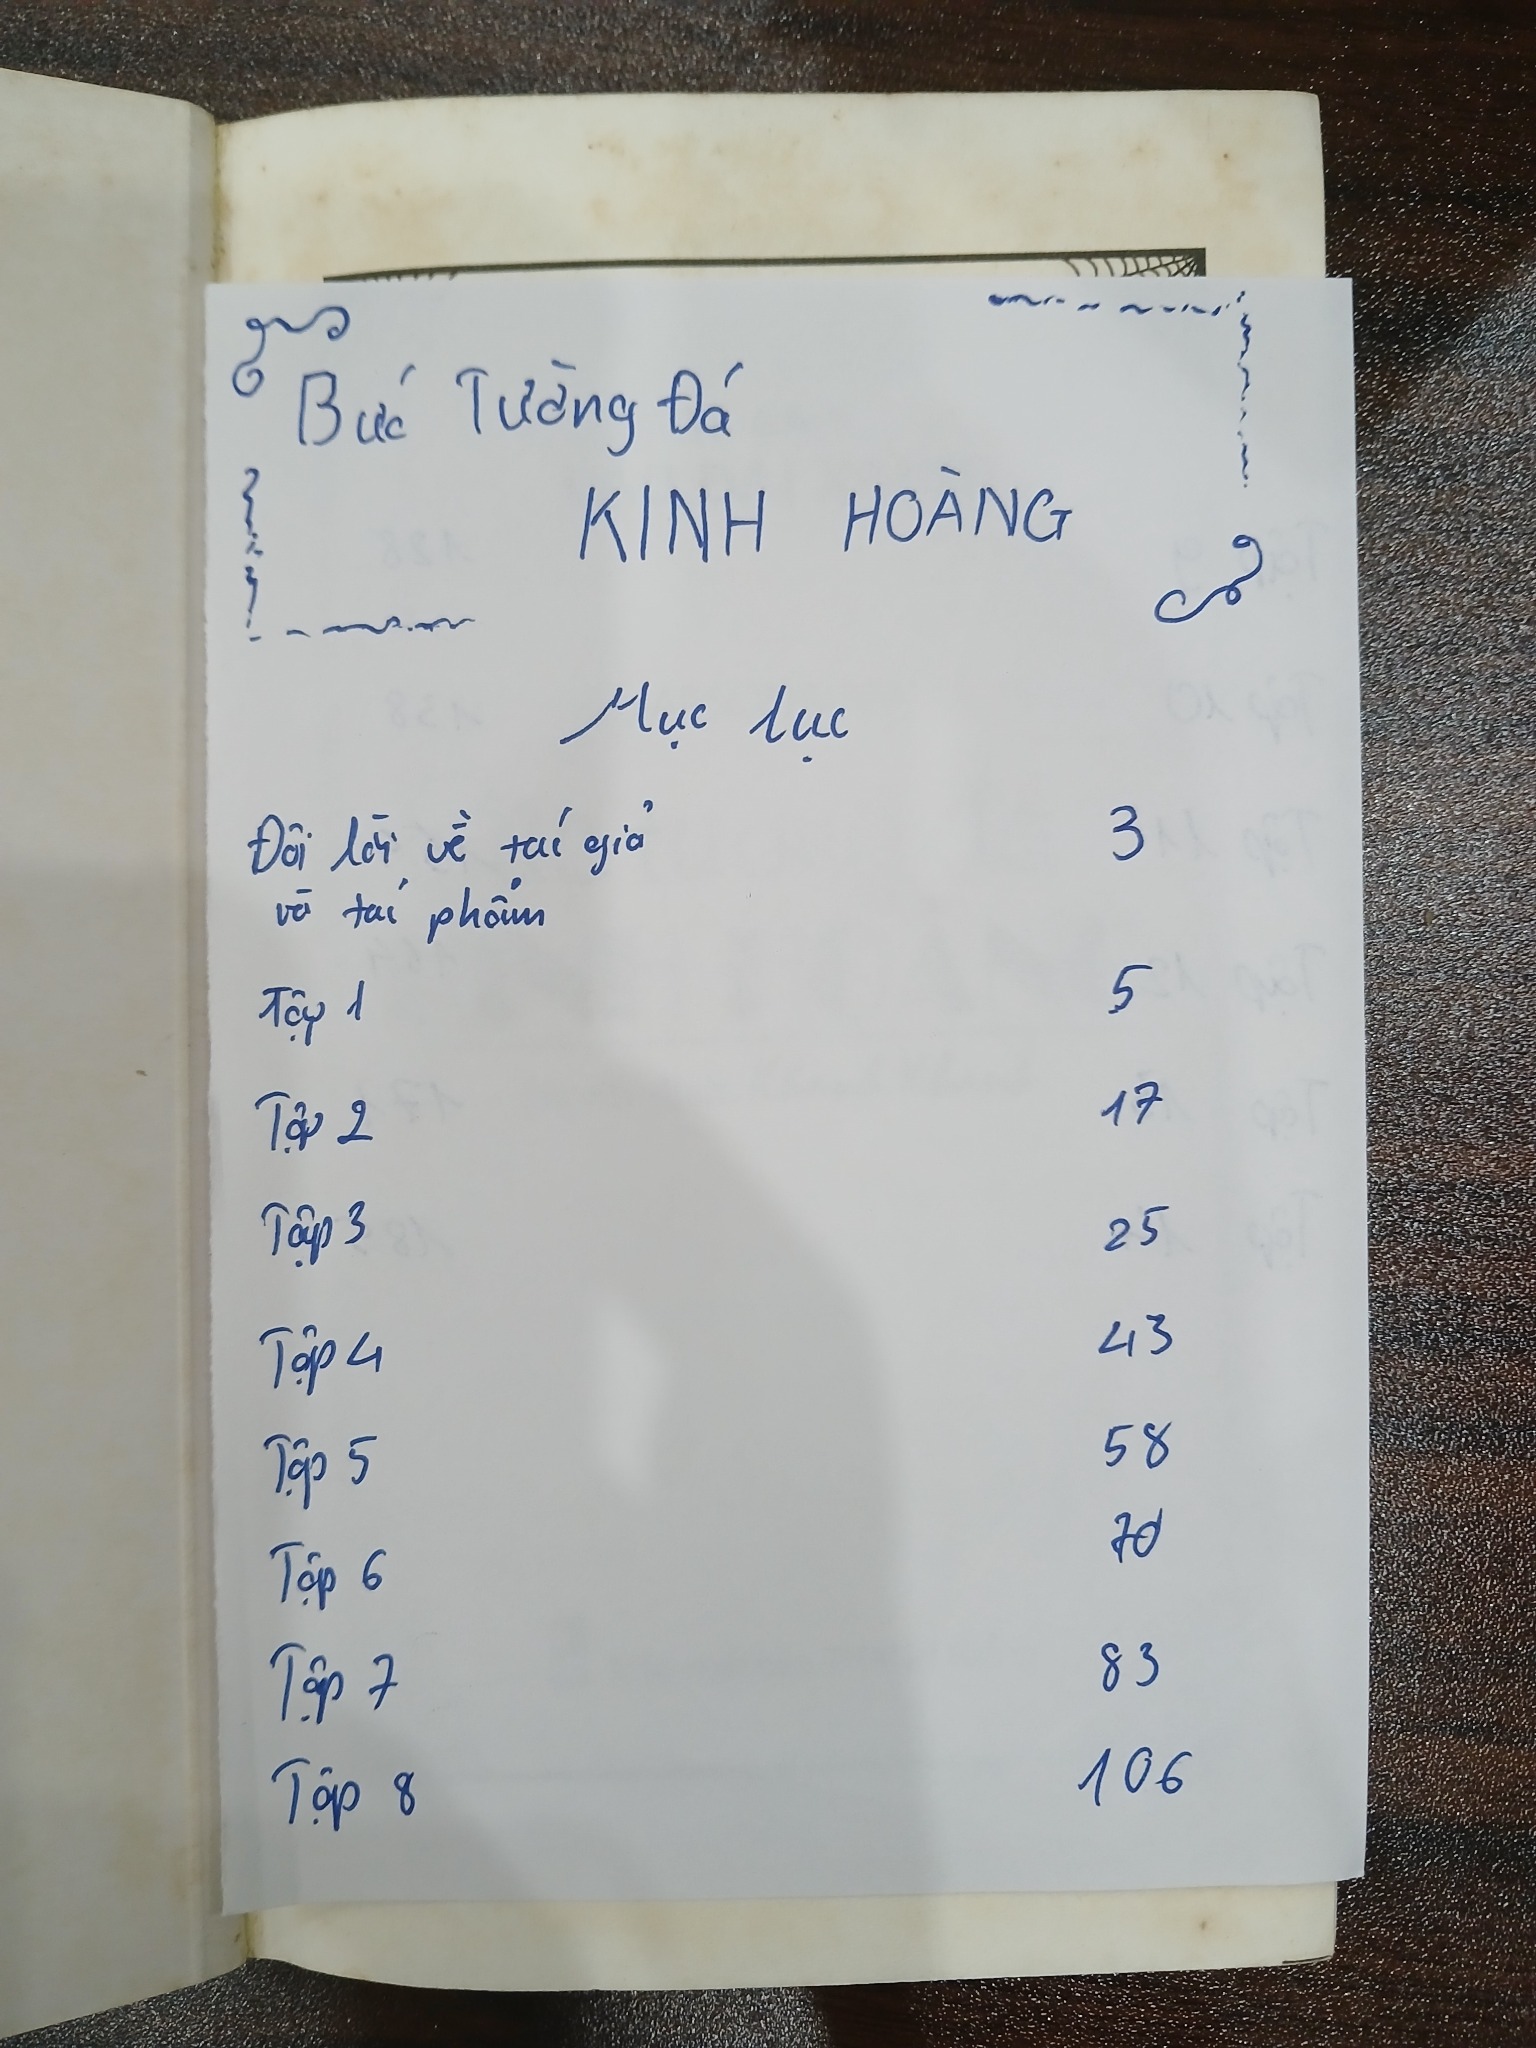 Bức Tường Đá
KINH HOÀNG
Mục lục
Đôi lời về tác giả 3
và tác phẩm
Tập 1 5
Tập 2 17
Tập 3 25
Tập 4 43
Tập 5 58
Tập 6 70
Tập 7 83
Tập 8 106